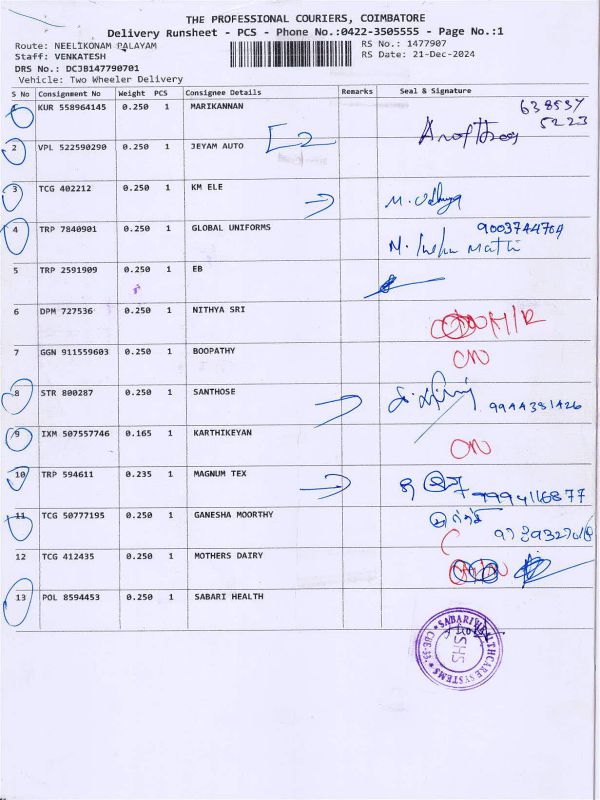 THE PROFESSIONAL COURIERS, COIMBATORE
Delivery Runsheet - PCS - Phone No.:0422-3505555 - Page No.:1
Route: NEELIKONAM PALAYAM RS No.: 1477907
Staff: VENKATESH RS Date: 21-Dec-2024
DRS No.: DCJB147790701
Vehicle: Two Wheeler Delivery
S No Consignment No Weight PCS Consignee Details Remarks Seal & Signature
1 KUR 558964145 0.250 1 MARIKANNAN 638537
5223
2 VPL 522590290 0.250 1 JEYAM AUTO
3 TCG 402212 0.250 1 KM ELE
4 TRP 7840901 0.250 1 GLOBAL UNIFORMS
5 TRP 2591909 0.250 1 EB
6 DPM 727536 0.250 1 NITHYA SRI
7 GGN 911559603 0.250 1 BOOPATHY
8 STR 800287 0.250 1 SANTHOSE 9944381426
9 IXM 507557746 0.165 1 KARTHIKEYAN
10 TRP 594611 0.235 1 MAGNUM TEX
11 TCG 50777195 0.250 1 GANESHA MOORTHY
12 TCG 412435 0.250 1 MOTHERS DAIRY
13 POL 8594453 0.250 1 SABARI HEALTH
SABARI HEALTHCARE SYSTEMS
SHS